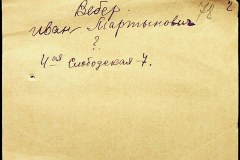 Вебер.
Иван Мартынович
?
4ая Слободская-7.